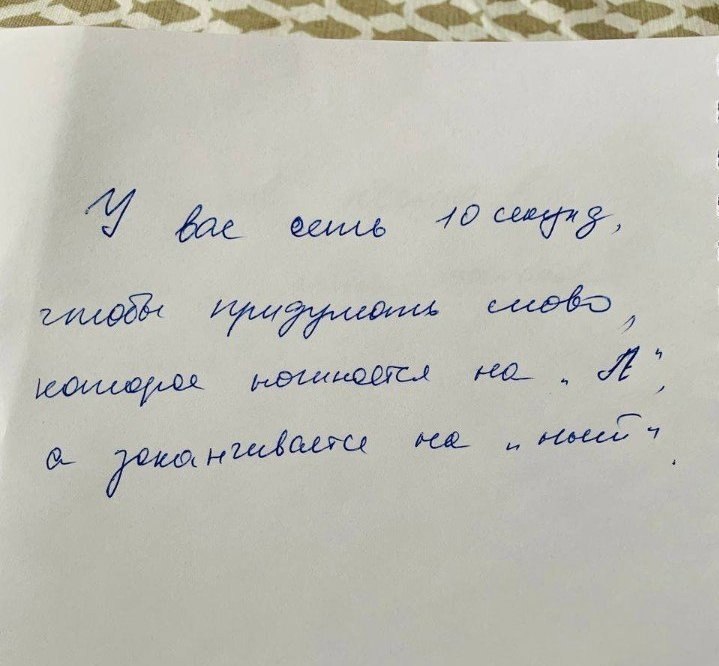 У вас есть 10 секунд,
чтобы придумать слово,
которое начинается на „Л",
а заканчивается на „ный".